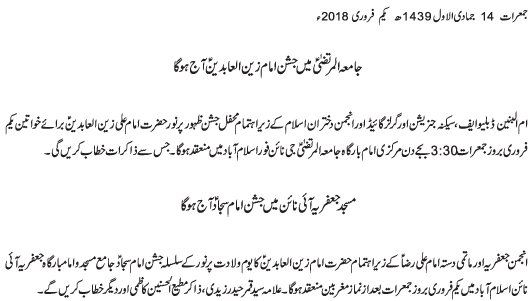 جمعرات 14 جمادی الاول 1439ھ یکم فروری 2018ء
جامعہ المرتضیٰؑ میں جشن امام زین العابدینؑ آج ہوگا
ام البنین ڈبلیو ایف، سیکنہ جنریشن اور گرلز گائیڈ اور انجمن دختران اسلام کے زیراہتمام محفل جشن ظہور پرنور حضرت امام علی زین العابدینؑ برائے خواتین یکم
فروری بروز جمعرات 3:30 بجے دن مرکزی امام بارگاہ جامعہ المرتضیٰؑ جی نائن فور اسلام آباد میں منعقد ہوگا۔ جس سے ذاکرات خطاب کریں گی۔
مسجد جعفریہ آئی نائن میں جشن امام سجادؑ آج ہوگا
انجمن جعفریہ اور ماتمی دستہ امام علی رضاؑ کے زیراہتمام حضرت امام زین العابدینؑ کا یوم ولادت پرنور کے سلسلہ جشن امام سجادؑ جامع مسجد و امامبارگاہ جعفریہ آئی
نائن اسلام آباد میں یکم فروری بروز جمعرات بعد از نماز مغربین منعقد ہوگا۔ علامہ سید قمر حیدر زیدی، ذاکر مطیع الحسنین کاظمی اور دیگر خطاب کریں گے۔